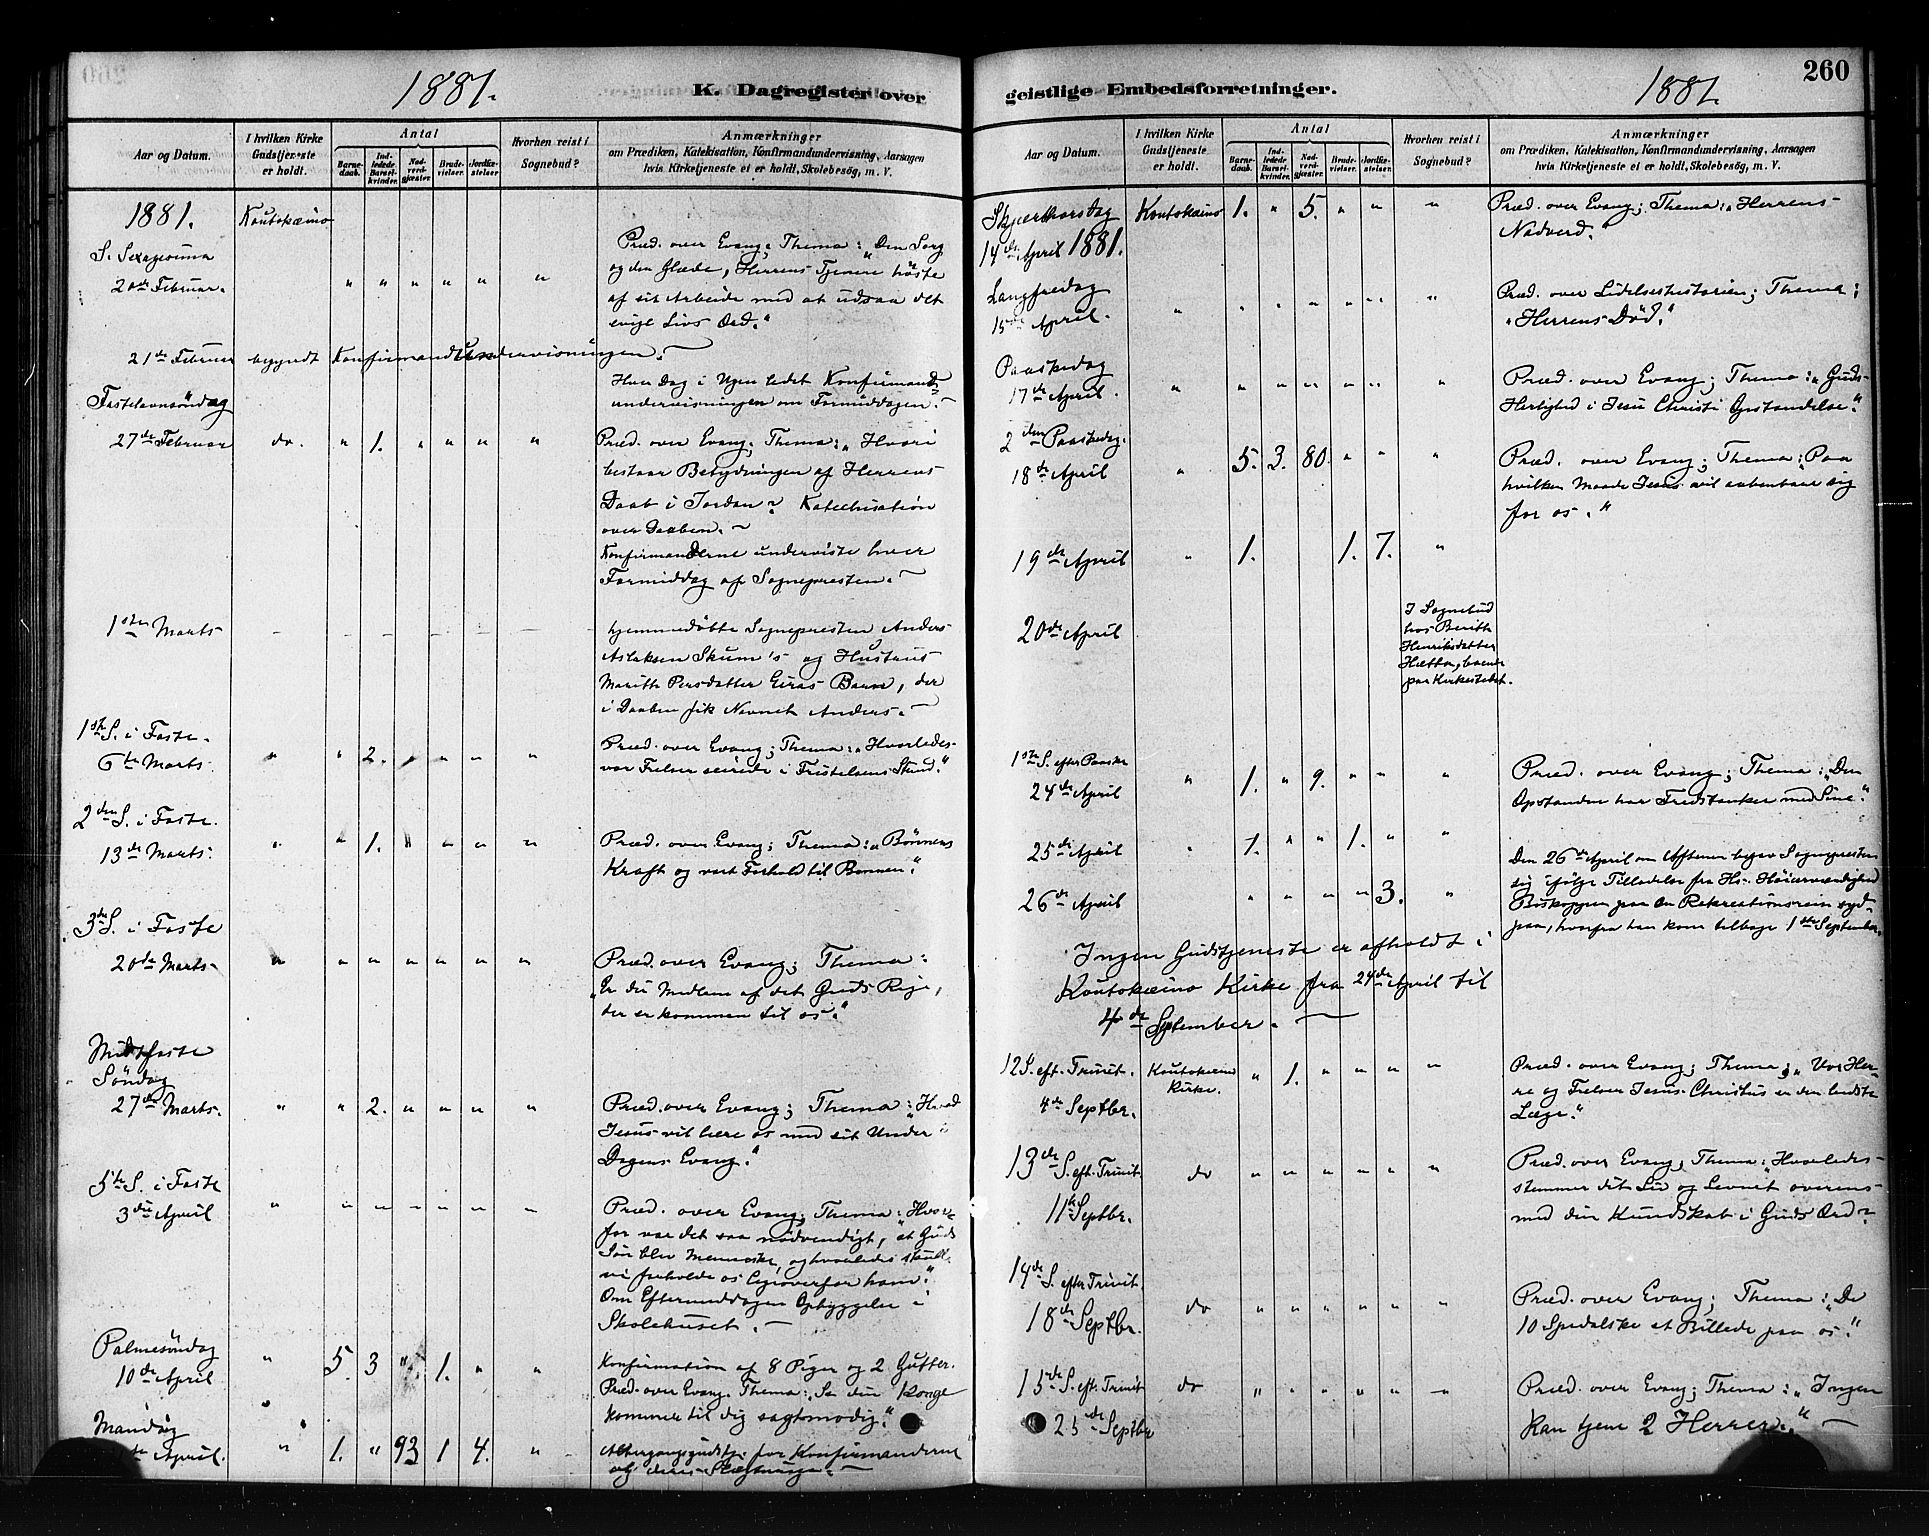 1881.
K. Dagregister over
Aar og Datum.
I hvilken Kirke Gudstjeneste er holdt.
Antal
Barnedaab.
Indledede Barselkvinder.
Nadverdgjæster.
Brudevielser.
Jordfæstelser.
Hvorhen reist i Sognebud?
Anmærkninger
om Prædiken, Katekisation, Konfirmandundervisning, Aarsagen
hvis Kirketjeneste ei er holdt, Skolebesøg, m. V.
1881. Koutokæino
S. Sexagesima
20de Februar. " " " " " "
Præd. over Evang; Thema: "Den Sorg
og den Glæde, Herrens Tjenere høste
af sit Arbeide med at udsaa det
evige Livs Ord."
21de Februar begyndt Konfirmandundervisningen.
Hver Dag i Ugen ledet Konfirmand-
undervisningen om Formiddagen.
Fastelavnsöndag
27de Februar do. " 1. " " " "
Præd. over Evang; Thema: "Hvori
bestaar Betydningen af Herrens
Daab i Jordan? Katechisation
over Daaben.
Konfirmanderne underviste hver
Formiddag af Sognepresten.
1ste Marts - - - - - - -
hjemmedöbte Sognepresten Anders
Aslaksen Skum's og Hustrus
Marith Persdatter Eiras Barn, der
i Daaben fik Navnet Anders.
1ste S. i Faste.
6te Marts " " 2. " " " "
Præd. over Evang; Thema: "Hvorledes
vor Frelser seirede i Fristelsens Stund."
2den S. i Faste.
13de Marts. " " 1. " " " "
Præd. over Evang; Thema: "Bønnens
Kraft og vort Forhold til Bønnen."
3die S. i Faste
20de Marts " " " " " " "
Præd. over Evang; Thema:
"Er du Medlem af det Guds Rige,
der er kommen til os."
Midtfaste
Söndag
27de Marts. " " 2. " " " "
Præd. over Evang; Thema: "Hvad
Jesus vil lære os med sit Under i
Dagens Evang."
5te S. i Faste
3die April " " " " " " "
Præd. over Evang; Thema: "Hvor-
for var det saa nødvendigt, at Guds
Søn blev Menneske, og hvorledes skulle
vi forholde os ligeoverfor ham."
Om Eftermiddagen Opbyggelse i
Skolehuset.
Palmesöndag
10de April " 5. 3 " 1. " "
Konfirmation af 8 Piger og 2 Gutter.
Præd. over Evang. Thema: "Se din Konge
kommer til dig sagtmodig."
Mandag
April. " 1. " 93 1 4. "
Altergangsgudstj. for Konfirmanderne
og deres Slægtninge.
geistlige Embedsforretninger.
1881.
260
Aar og Datum.
I hvilken Kirke Gudstjeneste er holdt.
Antal
Barnedaab.
Indledede Barselkvinder.
Nadverdgjæster.
Brudevielser.
Jordfæstelser.
Hvorhen reist i Sognebud?
Anmærkninger
om Prædiken, Katekisation, Konfirmandundervisning, Aarsagen
hvis Kirketjeneste ei er holdt, Skolebesøg, m. V.
Skjærthorsdag Koutokæino 1. " 5. " " "
14de April 1881.
Præd. over Evang; Thema: "Herrens
Nadverd."
Langfredag
15de April. " " " " " " "
Præd. over Lidelseshistorien; Thema:
"Herrens Död."
Paaskedag
17de April. " " " " " " "
Præd. over Evang; Thema: "Guds
Herlighed i Jesu Christi Opstandelse."
2den Paaskedag.
18de April " 5. 3. 80. " " "
Præd. over Evang; Thema: "Paa
hvilken Maade Jesus vil aabenbare sig
for os."
19de April " 1. 1. 7. "
20de April
I Sognebud
hos Berith
Henriksdatter
Hætta, boende
paa Kirkestedet.
1ste S. efter Paaske
24de April " 1. " 9. " " "
Præd. over Evang; Thema: "Den
Opstandne har Fredstanker med Sine."
25de April " 1. " " 1. " "
26de April " " " " 3. "
Den 26de April om Aftenen begav Sognepresten
sig ifølge Tilladelse fra Hs. Høiærværdighed
Biskoppen paa en Rekreationsreise syd-
paa, hvorfra han kom tilbage 1ste September.
Ingen Gudstjeneste er afholdt i
Koutokæino Kirke fra 24de April til
4de September.
12 S. eft. Trinit. Koutokæino Kirke. " 1. " " " "
4de Septbr.
Præd. over Evang; Thema: "Vor Her-
re og Frelser Jesus Christus er den bedste
Læge."
13de S. eft. Trinit. do " " " " " "
11te Septbr.
Præd. over Evang, Thema: "Hvorledes
stemmer dit Liv og Levnet overens
med din Kundskab i Guds Ord?
14de S. efter Trinit.
18de Septbr. do " " " " " "
Præd. over Evang; Thema: "De
10 Spedalske et Billede paa os."
15de S. eft. Trinit do " " " " " "
25de Septbr
Præd. over Evang; Thema: "Ingen
kan tjene 2 Herrer."